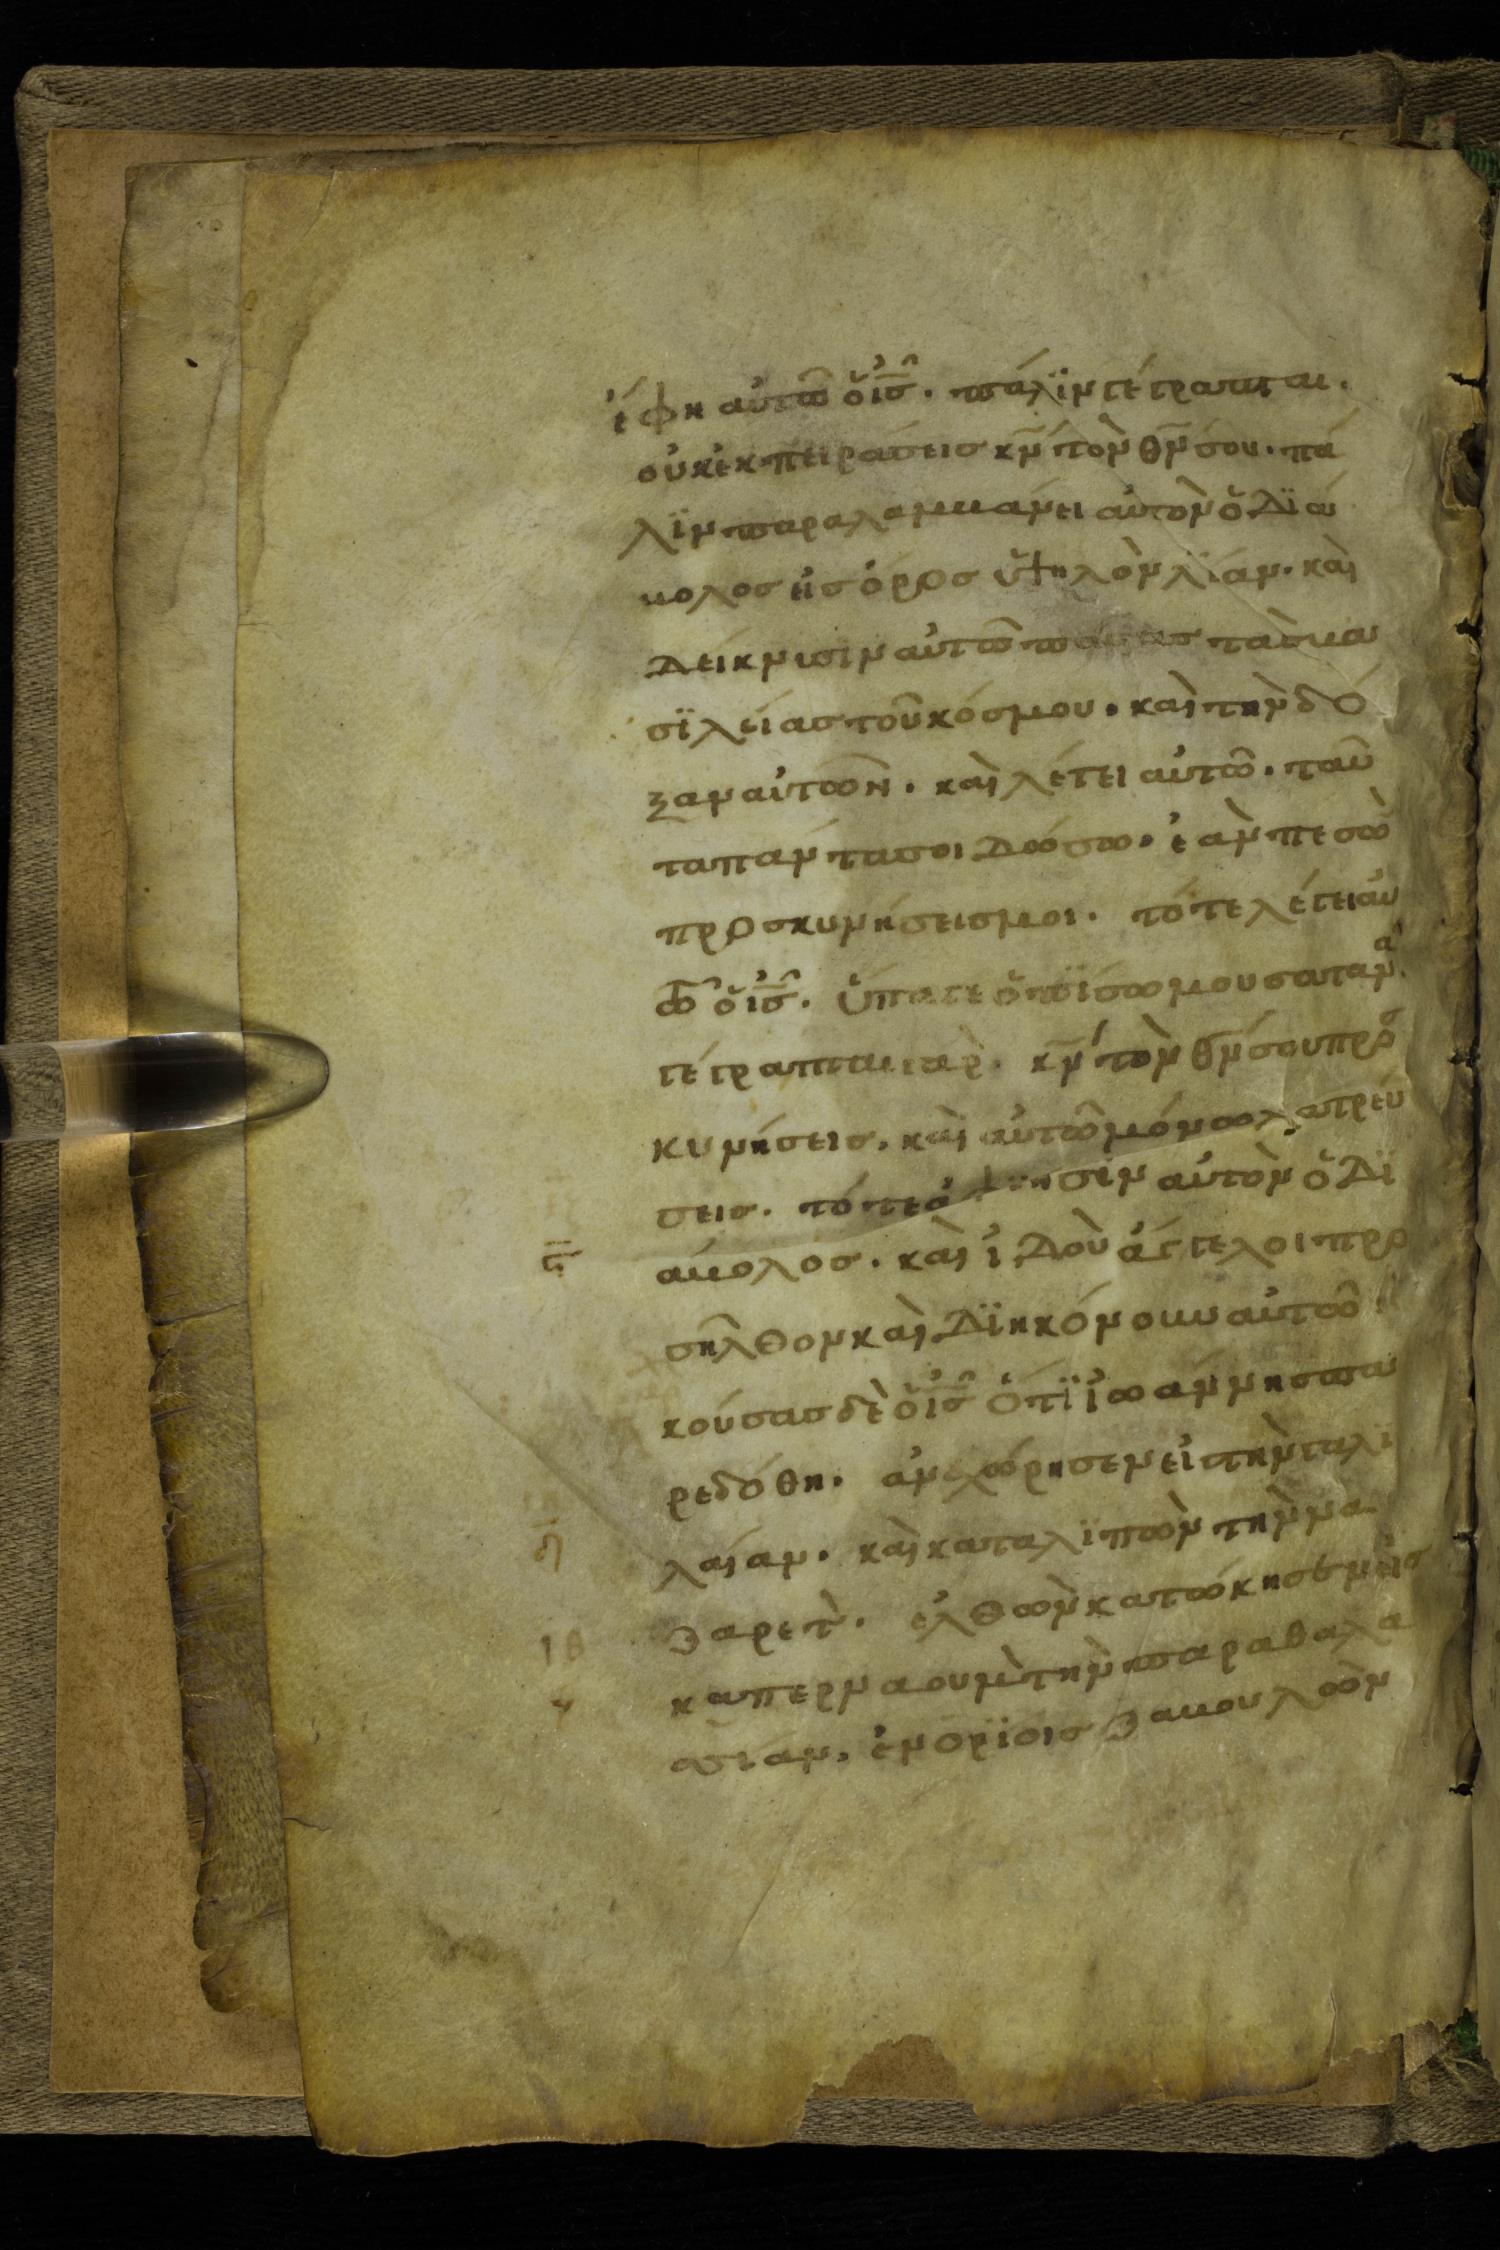 ἔφη αὐτῶ ὁ ἰ̅ς̅. πάλϊν γέγραπται.
οὐκ ἐκπειράσεις κ̅ν̅ τὸν θ̅ν̅ σου. πά
λϊν παραλαμβάνει αὐτὸν ὁ δϊά
βολος εἰς ὄρος ὑψηλὸν λϊάν. καὶ
δείκνισιν αὐτῶ πάντας τὰς βα
σϊλείας τοῦ κόσμου. καὶ τὴν δό
ξαν αὐτῶν. καὶ λέγει αὐτῶ. ταῦ
τα πάντα σοι δώσω. ἐὰν πεσὼ
προσκυνήσεις μοι. τότε λέγει αὐ
τῶ ὁ ἰ̅ς̅. ὕπαγε ὀπϊσω μου σαταν.ᾶ
γέγραπται γάρ. κ̅ν̅ τὸν θ̅ν̅ σου προσ
κυνήσεις. καὶ αὐτῶ μόνω λατρεύ
σεις. τότε ἀφιησιν αὐτὸν ὁ δϊ
άβολος. καὶ ἰδοὺ ἄγγελοι προ
σῆλθον καὶ δϊηκόνουν αὐτῶ ἀ
κούσας δὲ ὁ ἰ̅ς̅ ὅτϊ ἰωάννης πα
ρεδόθη. ἀνεχώρησεν εἰς τὴν γαλϊ
λαίαν. καὶ καταλϊπὼν τὴν να
ζαρέτ. ἐλθὼν κατώκησεν εἰς
καπερναοὺμ τὴν παραθαλα
σίαν. ἐν ὁρϊοις ζαβουλὼν
η
ιθ